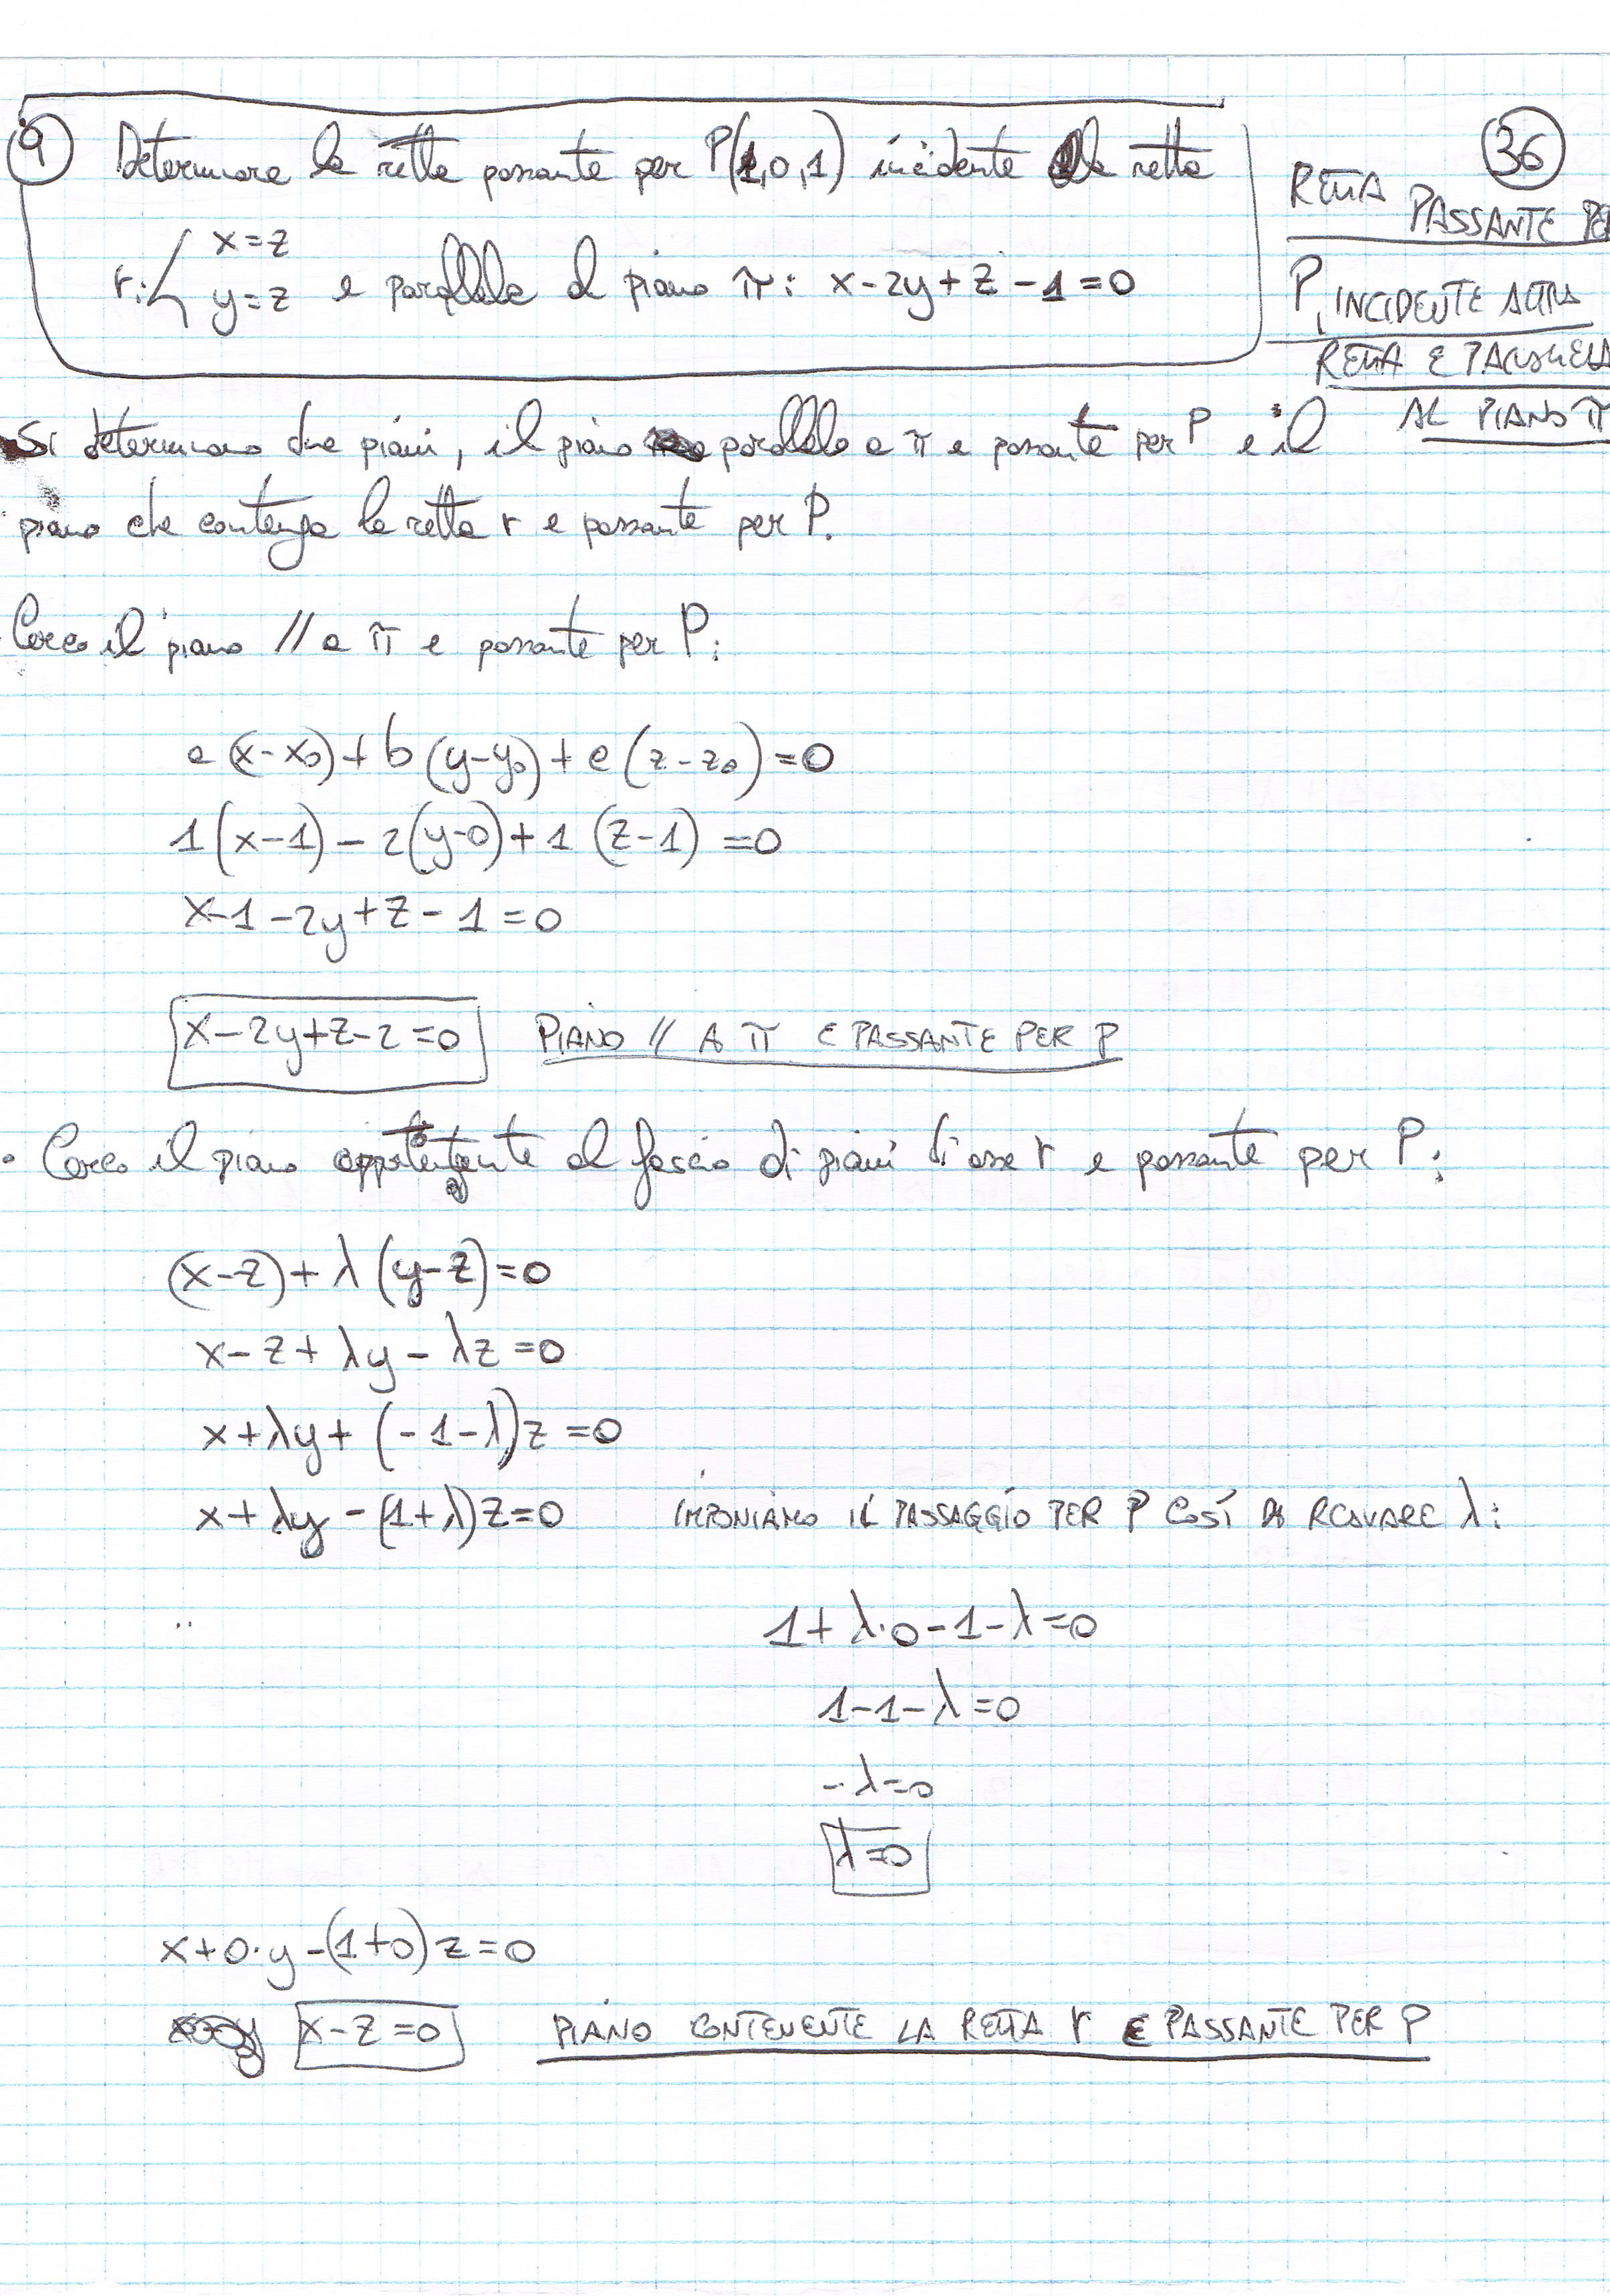 9 Determinare la retta passante per P(1,0,1) incidente alla retta
r: { x=z
y=z e parallela al piano π: x-2y+z-1=0
36
RETTA PASSANTE PER
P, INCIDENTE ALTRA
RETTA E PARALLELA
AL PIANO π
Si determinano due piani, il piano parallelo a π e passante per P e il
piano che contenga la retta r e passante per P.
Cerco il piano // a π e passante per P:
a(x-x₀)+b(y-y₀)+c(z-z₀)=0
1(x-1)-2(y-0)+1(z-1)=0
x-1-2y+z-1=0
x-2y+z-2=0 PIANO // A π E PASSANTE PER P
• Cerco il piano appartenente al fascio di piani di asse r e passante per P:
(x-z)+λ(y-z)=0
x-z+λy-λz=0
x+λy+(-1-λ)z=0
x+λy-(1+λ)z=0 IMPONIAMO IL PASSAGGIO PER P COSÍ DA RICAVARE λ:
1+λ·0-1-λ=0
1-1-λ=0
-λ=0
λ=0
x+0·y-(1+0)z=0
x-z=0 PIANO CONTENENTE LA RETTA r E PASSANTE PER P